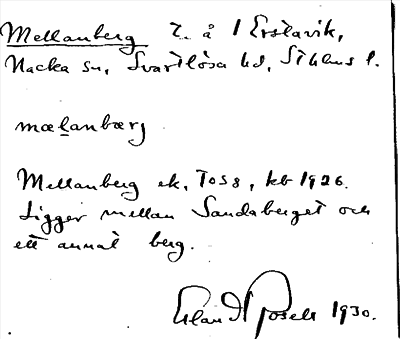 Mellanberg t. å 1 Erstavik,
Nacka sn, Svartlösa hd, Sthlms l.
mælanbærj
Mellanberg ek, Toss, kb 1926.
Ligger mellan Sandaberget och
ett annat berg.
Erland Rosell 1930.